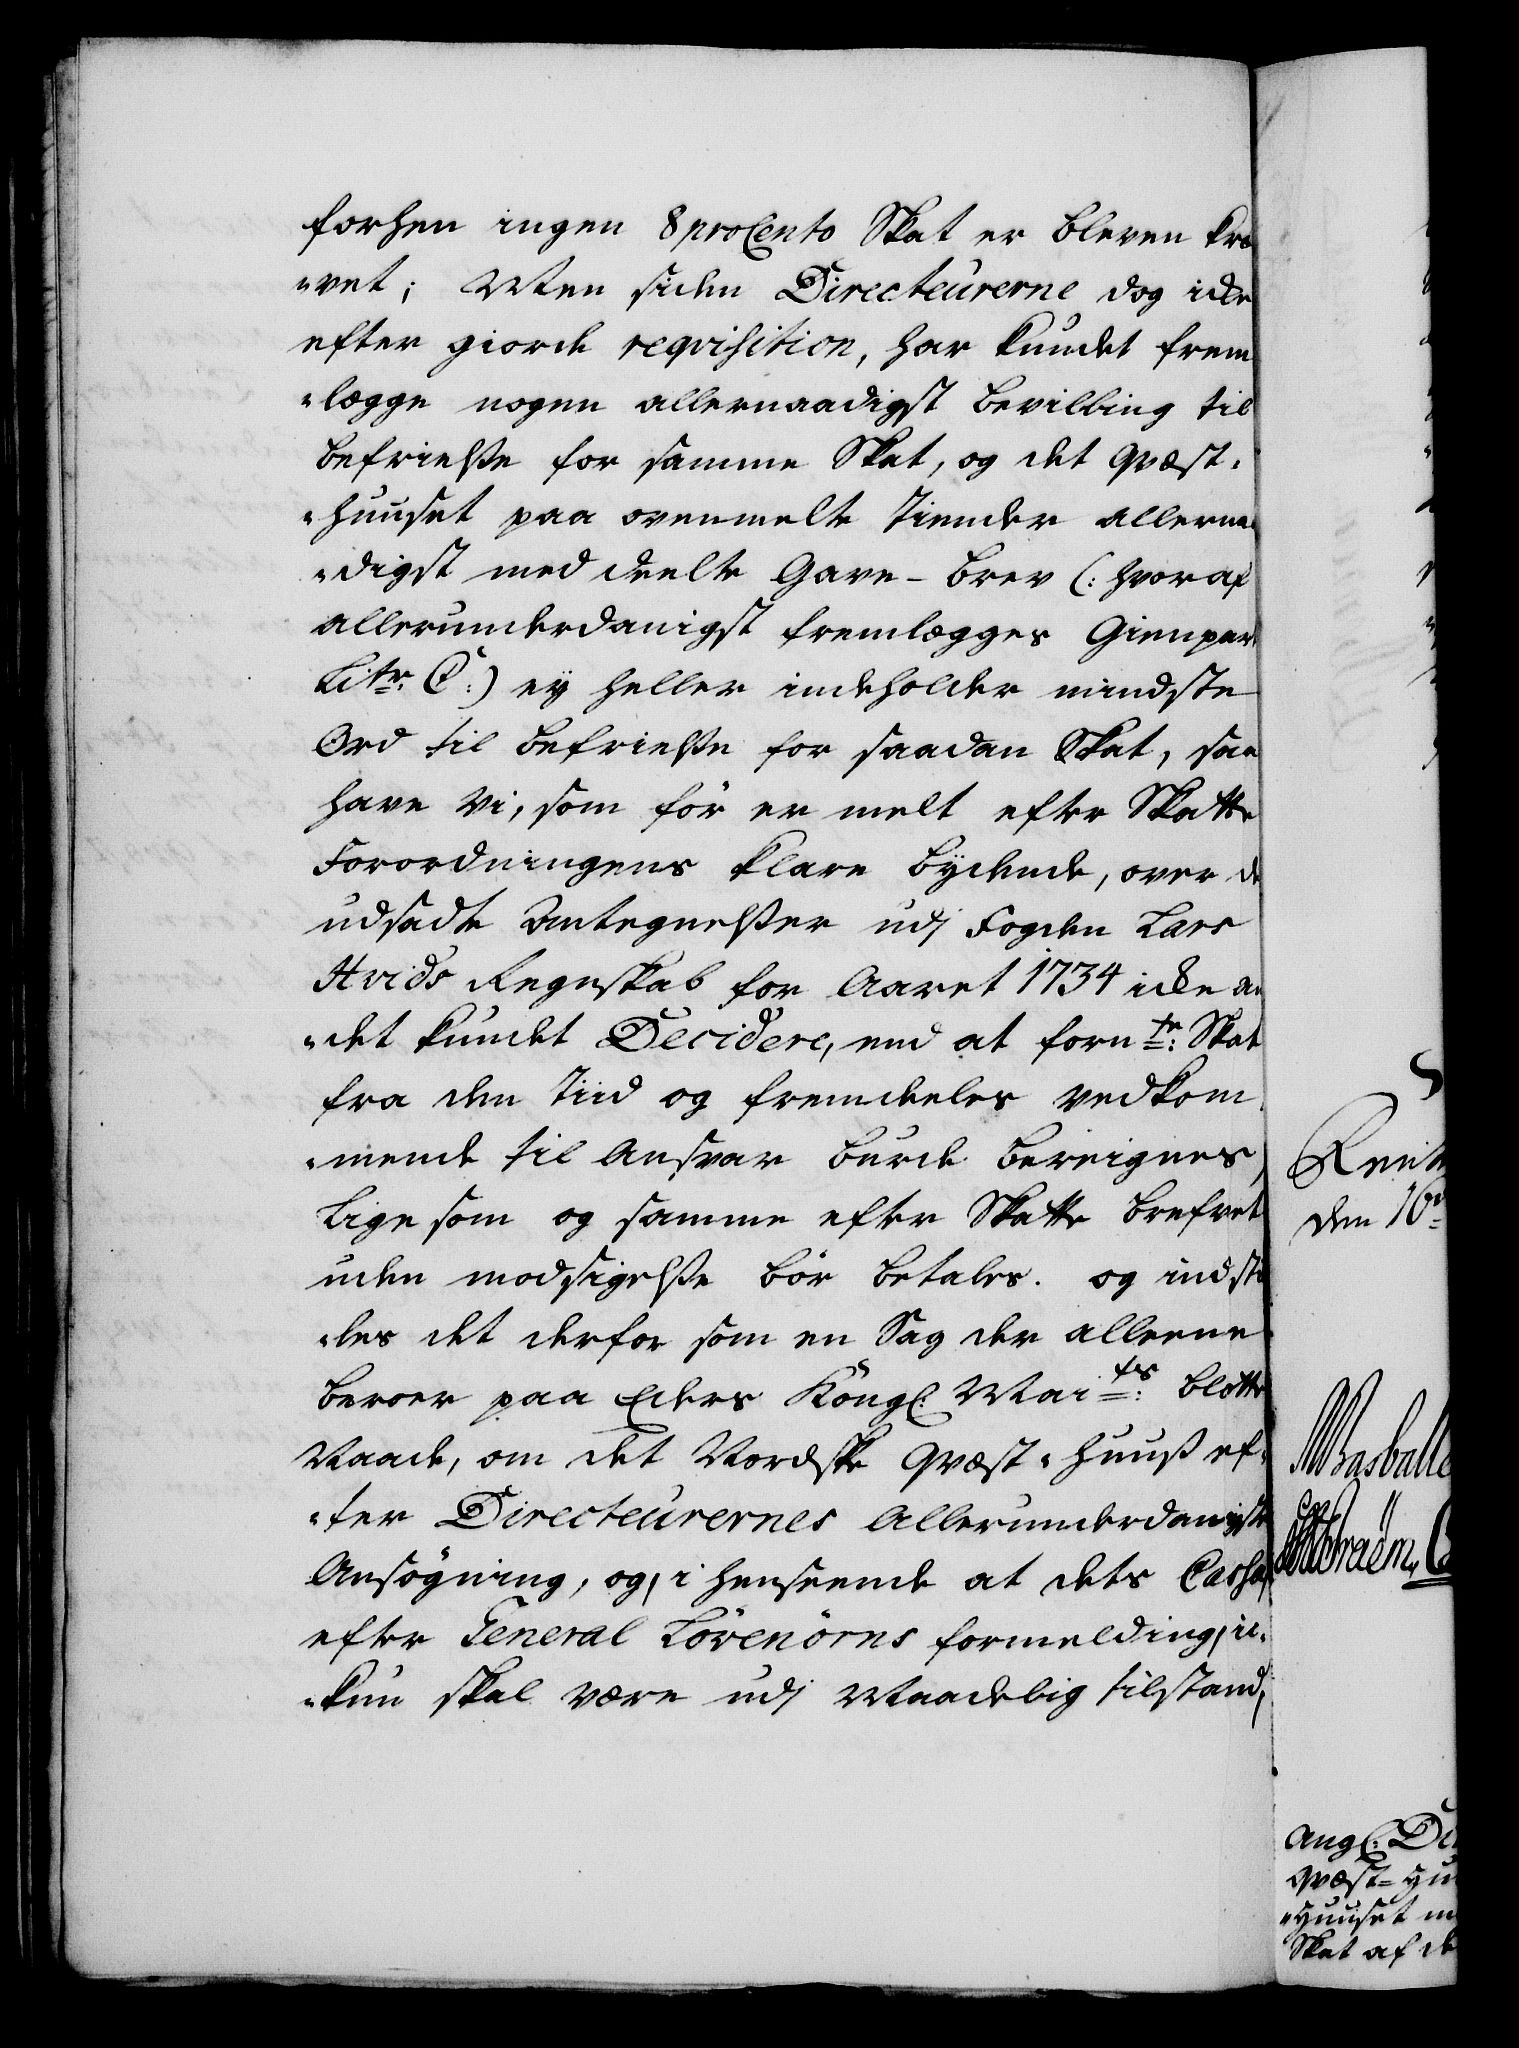 forhen ingen 8 procento Skat er bleven kræ
„vet; Men siden Directeurerne dog icke
efter giorde reqvisition, har kundet frem
„lægge nogen allernaadigst bevilling til
befrielse for samme Skat, og det Qvæst„
„huuset paa ovenmelte Tiender allernaa
„digst meddeelte Gave-brev (: hvoraf
allerunderdanigst fremlægges Gienpart
Litr: C:) ey heller indeholder mindste
Ord til befrielse for saadan Skat, saa
have Vi, som før er melt efter Skatte
Forordningens klare bydende, over de
udsadte Antegnelser udj Fogden Lars
Hvids Regnskab for Aaret 1734 icke an
„det kundet Decidere, end at fornte: Skat
fra den Tiid og fremdeeles vedkom„
„mende til Ansvar burde bereignes,
ligesom og samme efter Skatte brefvet
uden modsigelse bør betales. og indstil
„les det derfor som en Sag der alleene
beroer paa Eders Kongl: Maits: blotte
Naade, om det Nordske Qvæst„huus ef„
„ter Directeurernes Allerunderdanigste
Ansøgning, og, i henseende at dets Cassa,
efter General Lövenörns formelding, ic„
„kun skal være udj Maadelig tilstand,
Rente
den 16de
Angl: Di
Qvæst-Hu
„Huuset m
Skat af de